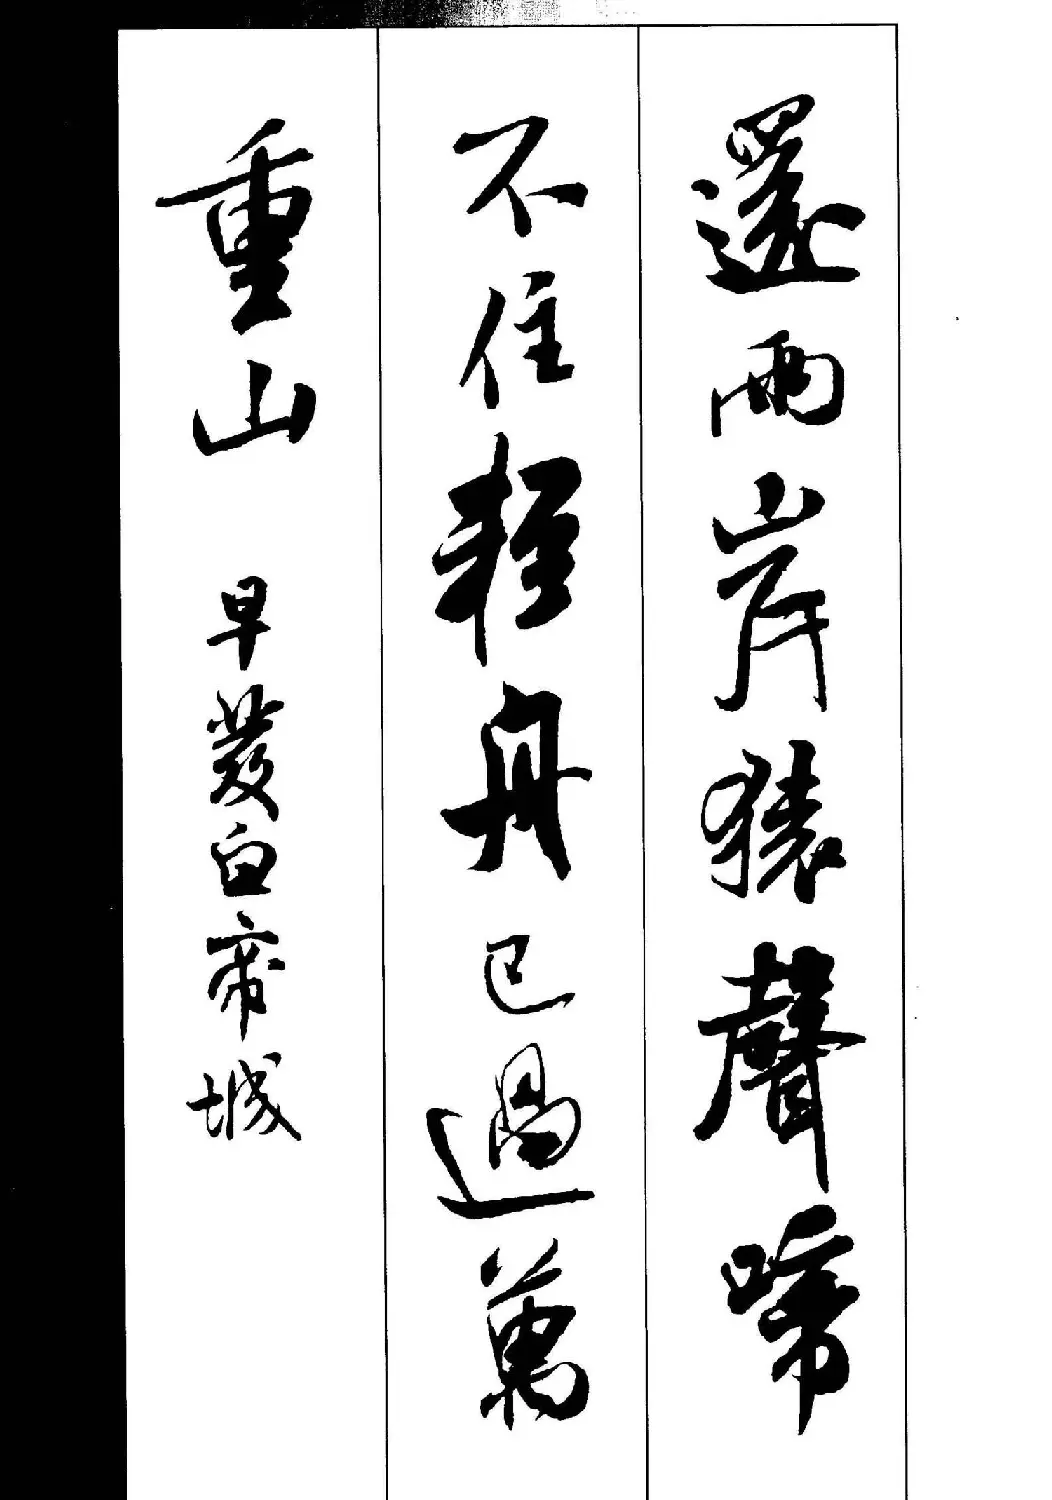 還兩岸猿聲啼
不住輕舟已過萬
重山 早發白帝城